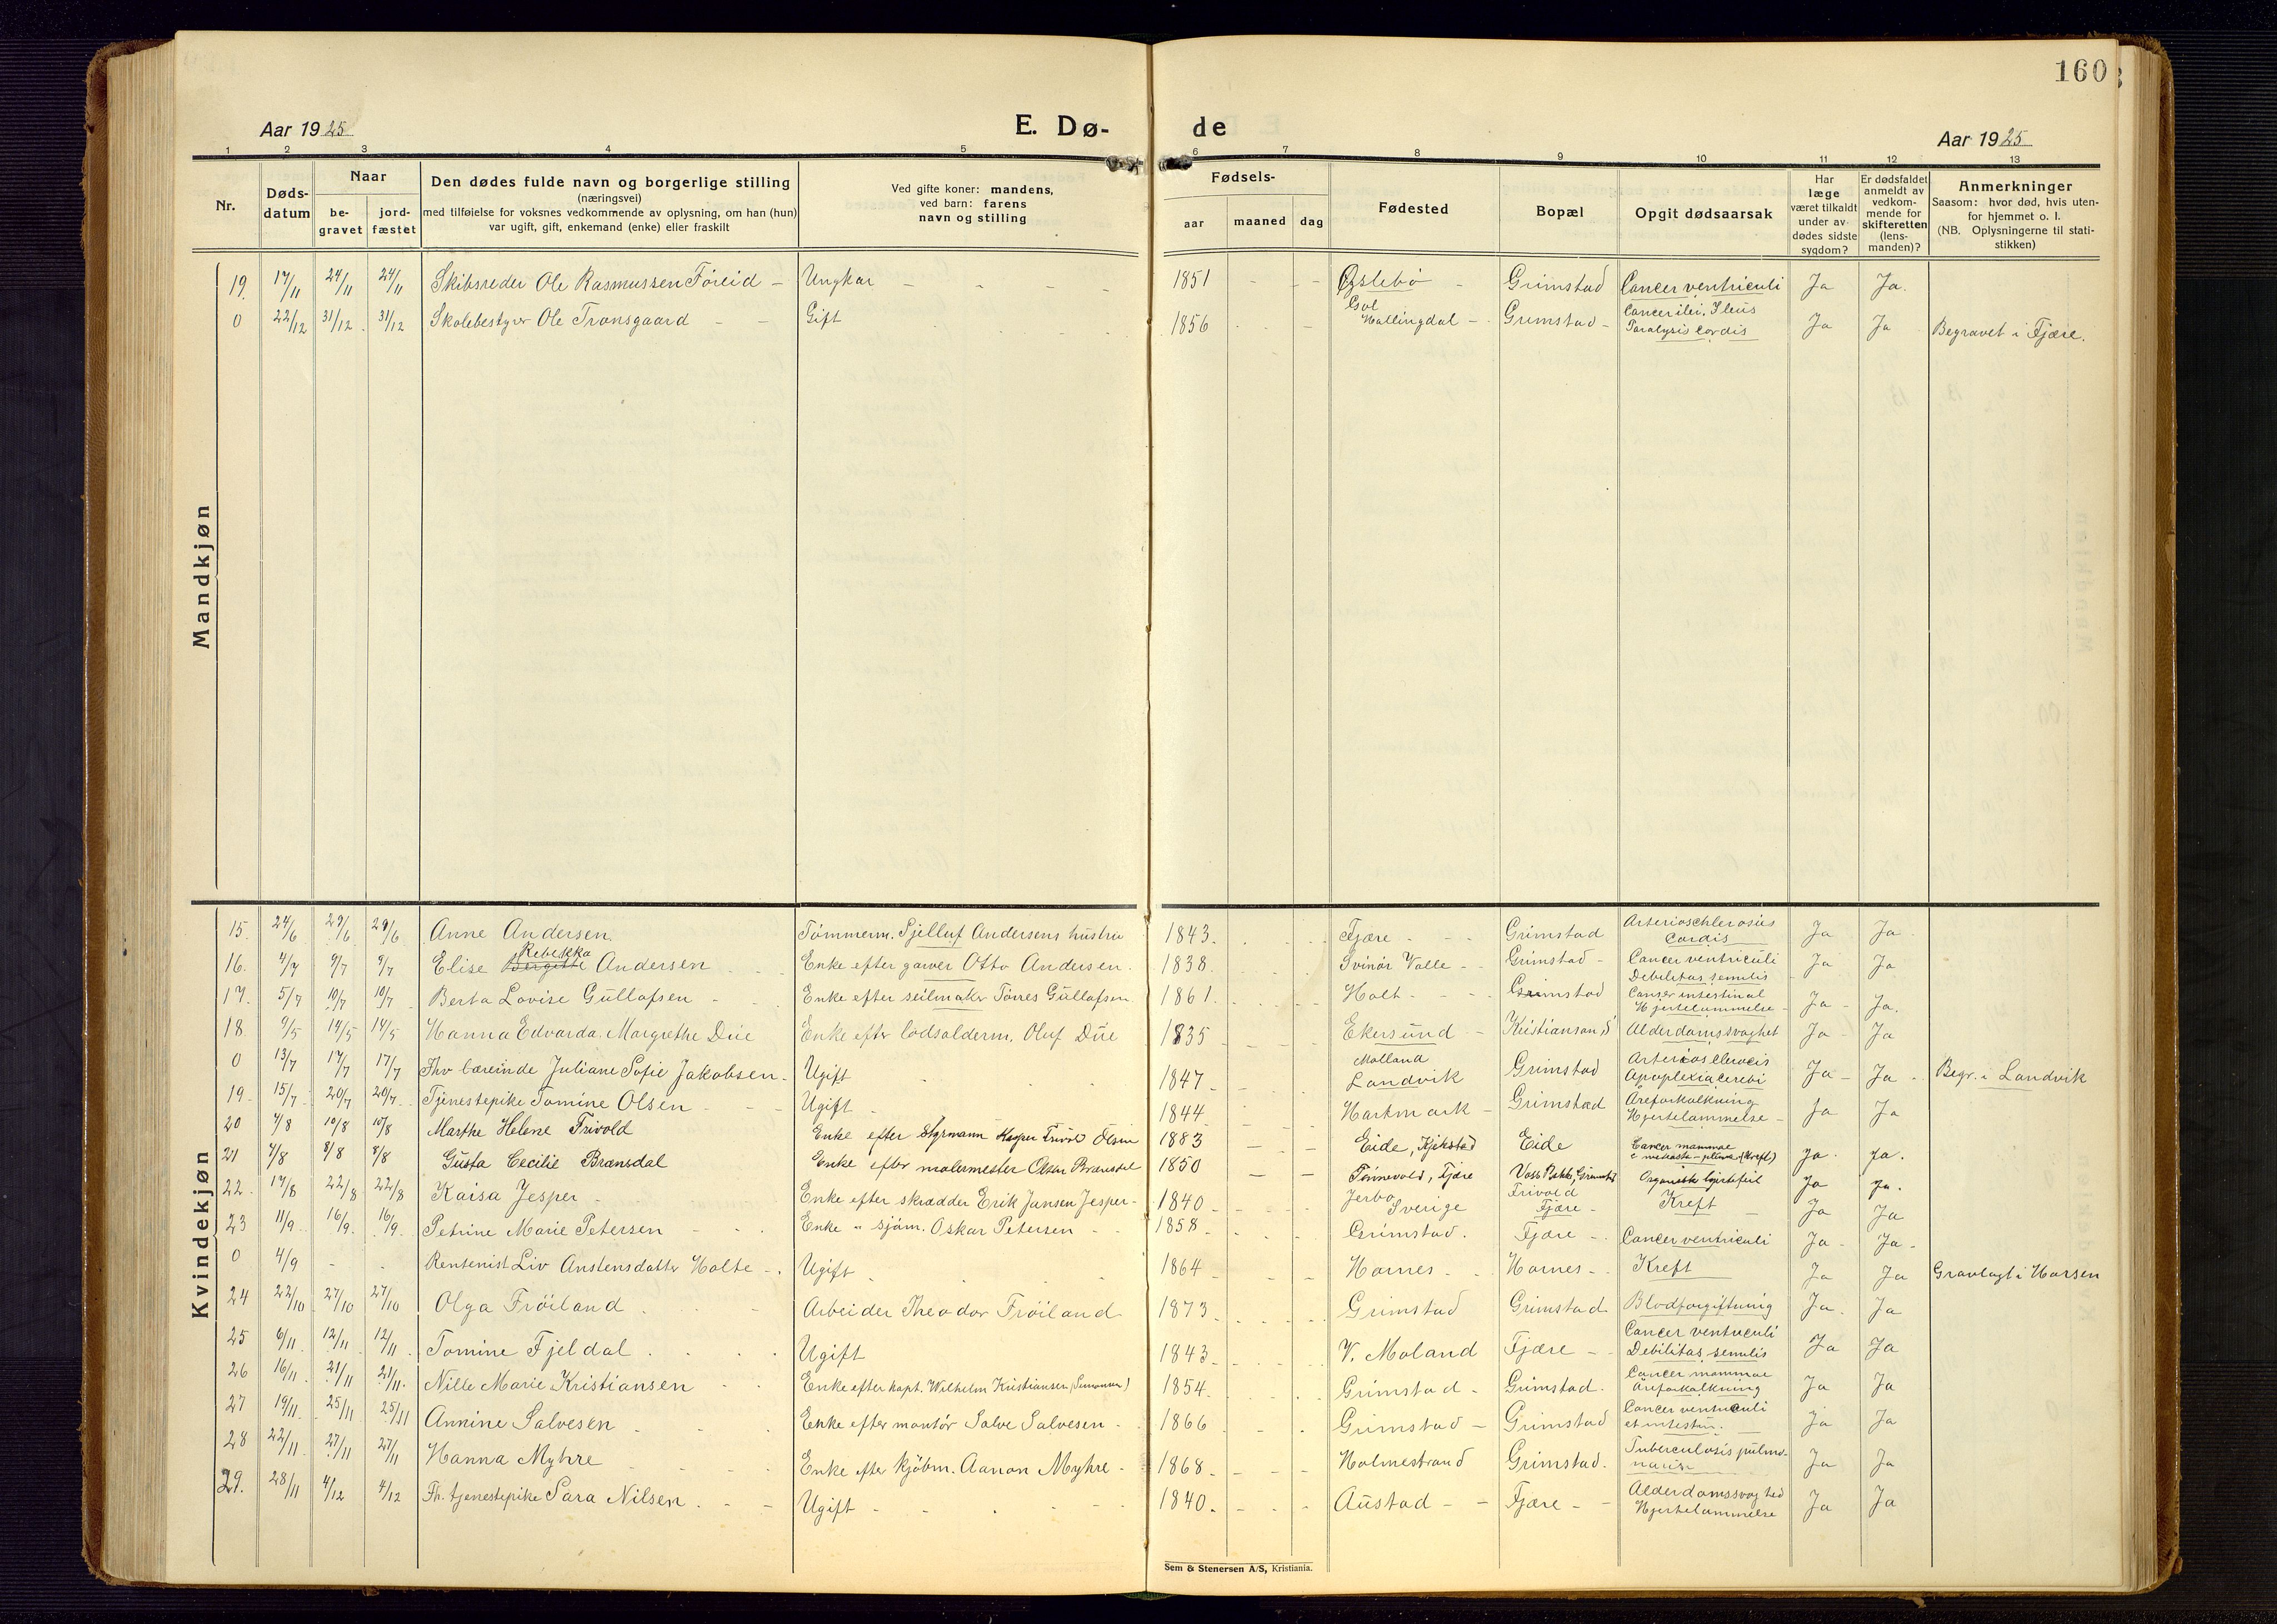 160
Aar 1925 E. Dø- de Aar 1925
1 2 3 4 5 6 7 8 9 10 11 12 13
Nr. Døds-datum Naar be-gravet jord-fæstet Den dødes fulde navn og borgerlige stilling (næringsvei) med tilføielse for voksnes vedkommende av oplysning, om han (hun) var ugift, gift, enkemand (enke) eller fraskilt Ved gifte koner: mandens, ved barn: farens navn og stilling Fødsels- aar maaned dag Fødested Bopæl Opgit dødsaarsak Har læge været tilkaldt under av dødes sidste sygdom? Er dødsfaldet anmeldt av vedkom-mende for skifteretten (lens-manden)? Anmerkninger Saasom: hvor død, hvis uten-for hjemmet o. l. (NB. Oplysningerne til stati-stikken)
Mandkjøn
19. 17/11 24/11 24/11 Skibsreder Ole Rasmussen Føreid - Ungkar 1851 Øslebø Grimstad Cancer ventriculi Ja Ja.
0 22/12 31/12 31/12 Skolebestyrer Ole Tronsgaard Gift 1856 Gol Hallingdal Grimstad Cancer ilei, Ileus Paralysis cordis Ja Ja Begravet i Fjære.
Kvindekjøn
15. 24/6 29/6 29/6 Anne Andersen Tømmerm. Pjelluf Andersens hustru 1843. Fjære Grimstad Arterioschlerosus Cordis Ja Ja
16. 4/7 9/7 9/7 Elise Bergitte Rebekka Andersen Enke efter garver Otto Andersen. 1838. Svinør Valle Grimstad Cancer ventriculi Debilitas senulis Ja Ja
17. 5/7 10/7 10/7 Berta Lovise Gullofsen Enke efter seilmaker Tørres Gullofsen 1861. Holt Grimstad Canser intestinal Hjertelammelse Ja Ja.
18 9/5 14/5 14/5 Hanna Edvarda Margrethe Due Enke efter lodsolderm. Oluf Due 1835 Ekersund Kristiansand S Alderdomssvaghet Ja Ja
0 13/7 17/7 17/7 Fhv lærerinde Juliane Sofie Jakobsen Ugift 1847 Molland Landvik Grimstad Arteriosclerocis Apoplexia cerebi Ja Ja Begr. i Landvik
19. 15/7 20/7 20/7 Tjenestepike Tomine Olsen Ugift 1844 Hartmark Grimstad Areforkalkning Hjertelammelse Ja Ja
20 4/8 10/8 10/8 Marthe Helene Frivold Enke efter Styrmann Kasper Frivold Olsen 1883 Eide, Kjikstad Eide Cancer mammae (Kreft) Ja. Ja.
21 4/8 8/8 8/8 Gusta Cecilie Brænsdal Enke efter malermester Olsen Brænsdal 1850 Tønnevold, Fjære Voss Bakke, Grimstad Organisk hjertefeil Ja Ja.
22. 17/8 22/8 22/8 Kaisa Jesper Enke efter skrædder Erik Jansen Jesper 1840 Jerbo Sverige Frivold Fjære Kreft Ja Ja
23 11/9 16/9 16/9 Petrine Marie Petersen Enke " sjøm. Oskar Petersen 1858 Grimstad. Fjære Cancer ventriculi Ja Ja
0 4/9 - - Rentenist Liv Anstensdatter Holte Ugift 1864 Hornes Hornes Kreft Ja Ja Gravlagt i Horsen
24 22/10 27/10 27/10 Olga Frøiland Arbeider Theodor Frøiland 1873 Grimstad Grimstad Blodforgiftning Ja. Ja
25 6/11 12/11 12/11 Tomine Fjeldal Ugift 1843 V. Moland Fjære Cancer ventriculi Debilitas senulis Ja Ja
26 16/11 21/11 21/11 Nille Marie Kristiansen Enke efter kapt. Wilhelm Kristiansen 1854 Grimstad Grimstad. Cancer mammae Areforkalkning Ja Ja
27 19/11 25/11 25/11 Annine Salvesen Enke efter montør Salve Salvesen 1866 Grimstad Grimstad Cancer ventriculi et intestin. Ja Ja
28 22/11 27/11 27/11 Hanna Myhre Enke efter kjøbm. Aanon Myhre 1868 Holmestrand Grimstad. Tuberculosis pulmo-naris Ja Ja
29. 28/11 4/12 4/12 Fh. tjenestepike Sara Nilsen Ugift 1840 Austad Fjære Alderdomssvaghed Hjertelammelse Ja Ja
Sem & Stenersen A/S, Kristiania.